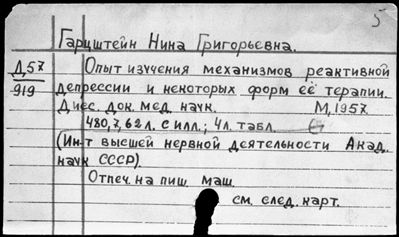 5
Гарцштейн Нина Григорьевна.
Д57
919
Опыт изучения механизмов реактивной
депрессии и некоторых форм её терапии.
Дисс. док. мед. наук. М, 1957.
480, 7, 62 л. с илл.; 4 л. табл.
(Ин-т высшей нервной деятельности Акад.
наук СССР).
Отпеч. на пиш. маш.
см. след. карт.